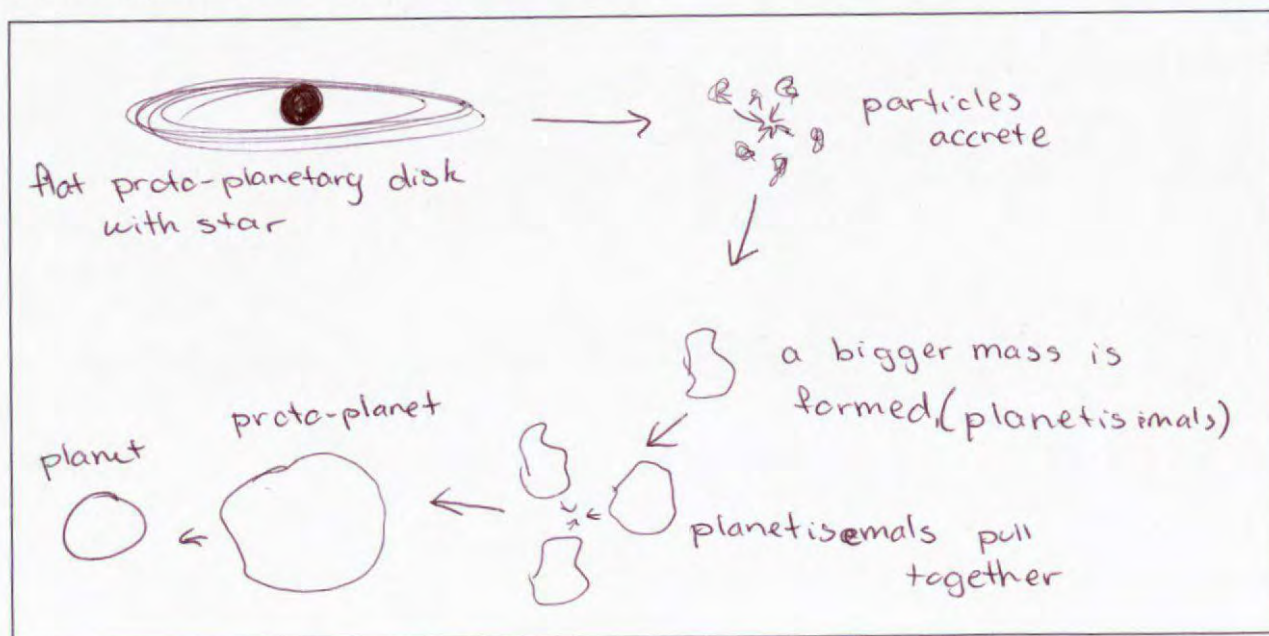 flat proto-planetary disk
with star
particles
accrete
a bigger mass is
formed, (planetisimals)
planetisemals pull
together
proto-planet
planet